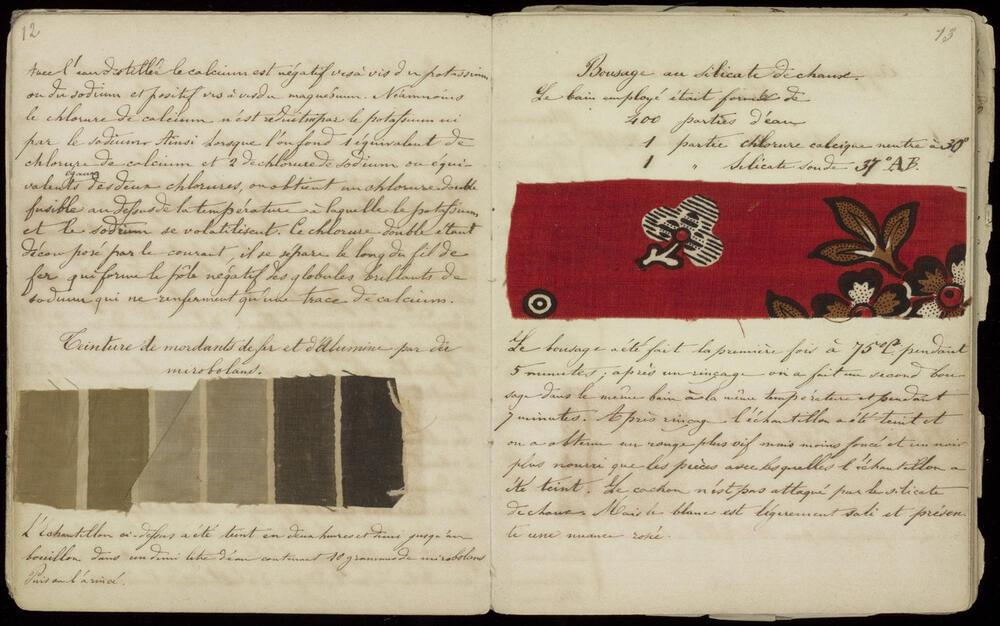 12
Avec l'eau distillée le calcium est négatif vis à vis du potassium
ou du sodium et positif vis à vis du magnésium. Néanmoins
le chlorure de calcium n'est réduit ni par le potassium ni
par le sodium. Ainsi lorsque l'on fond 1 équivalent de
chlorure de calcium et 2 de chlorure de sodium ou équi-
valents égaux des deux chlorures, on obtient un chlorure double
fusible au dessus de la température à laquelle le potassium
et le sodium se volatilisent. Ce chlorure double étant
décomposé par le courant, il se sépare le long du fil de
fer qui forme le pôle négatif des globules brillants de
sodium qui ne renferment qu'une trace de calcium.
Teinture de mordants de fer et d'Alumine par die
mirobolans.
L'Echantillon ci-dessus a été teint en deux heures et demi jusqu'au
bouillon dans un demi litre d'eau contenant 10 grammes de mirobolans
Puis on l'a rincé.
13
Bousage au silicate de chaux.
Le bain employé était formé de
400 parties d'eau
1 partie chlorure calcique neutre à 30°
1 " silicate soude 37° AB.
Le bousage a été fait la première fois à 75°C pendant
5 minutes; après un rinçage on a fait un second bou-
sage dans le même bain à la même température et pendant
7 minutes. Après rinçage l'échantillon a été teint et
on a obtenu un rouge plus vif mais moins foncé et un noir
plus nourri que les pièces avec lesquelles l'échantillon a
été teint. Le cachou n'est pas attaqué par le silicate
de chaux. Mais le blanc est légèrement sali et présen-
te une nuance rosée.